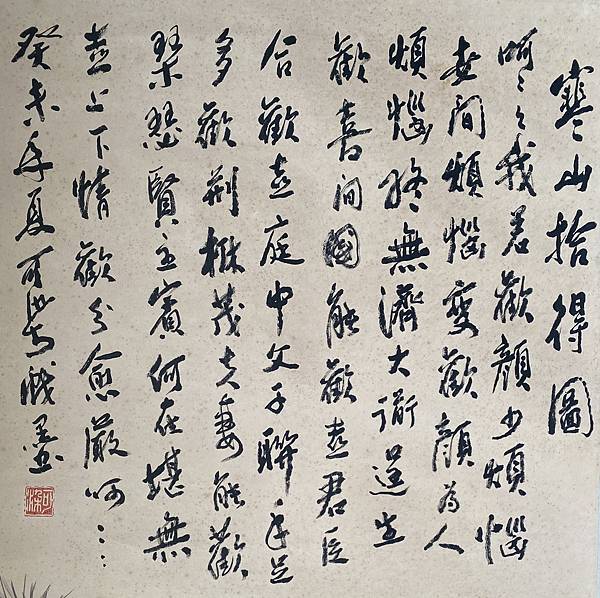 寒山拾得圖
呵々々我若歡顏少煩惱
世間煩惱變歡顏為人
煩惱終無濟大道還生
歡喜間國能歡喜君臣
合歡喜庭中父子聯手足
多歡荊樹茂夫妻能歡
琴瑟賢主賓何在堪無
喜上下情歡分愈嚴呵…
癸未年夏可戲墨